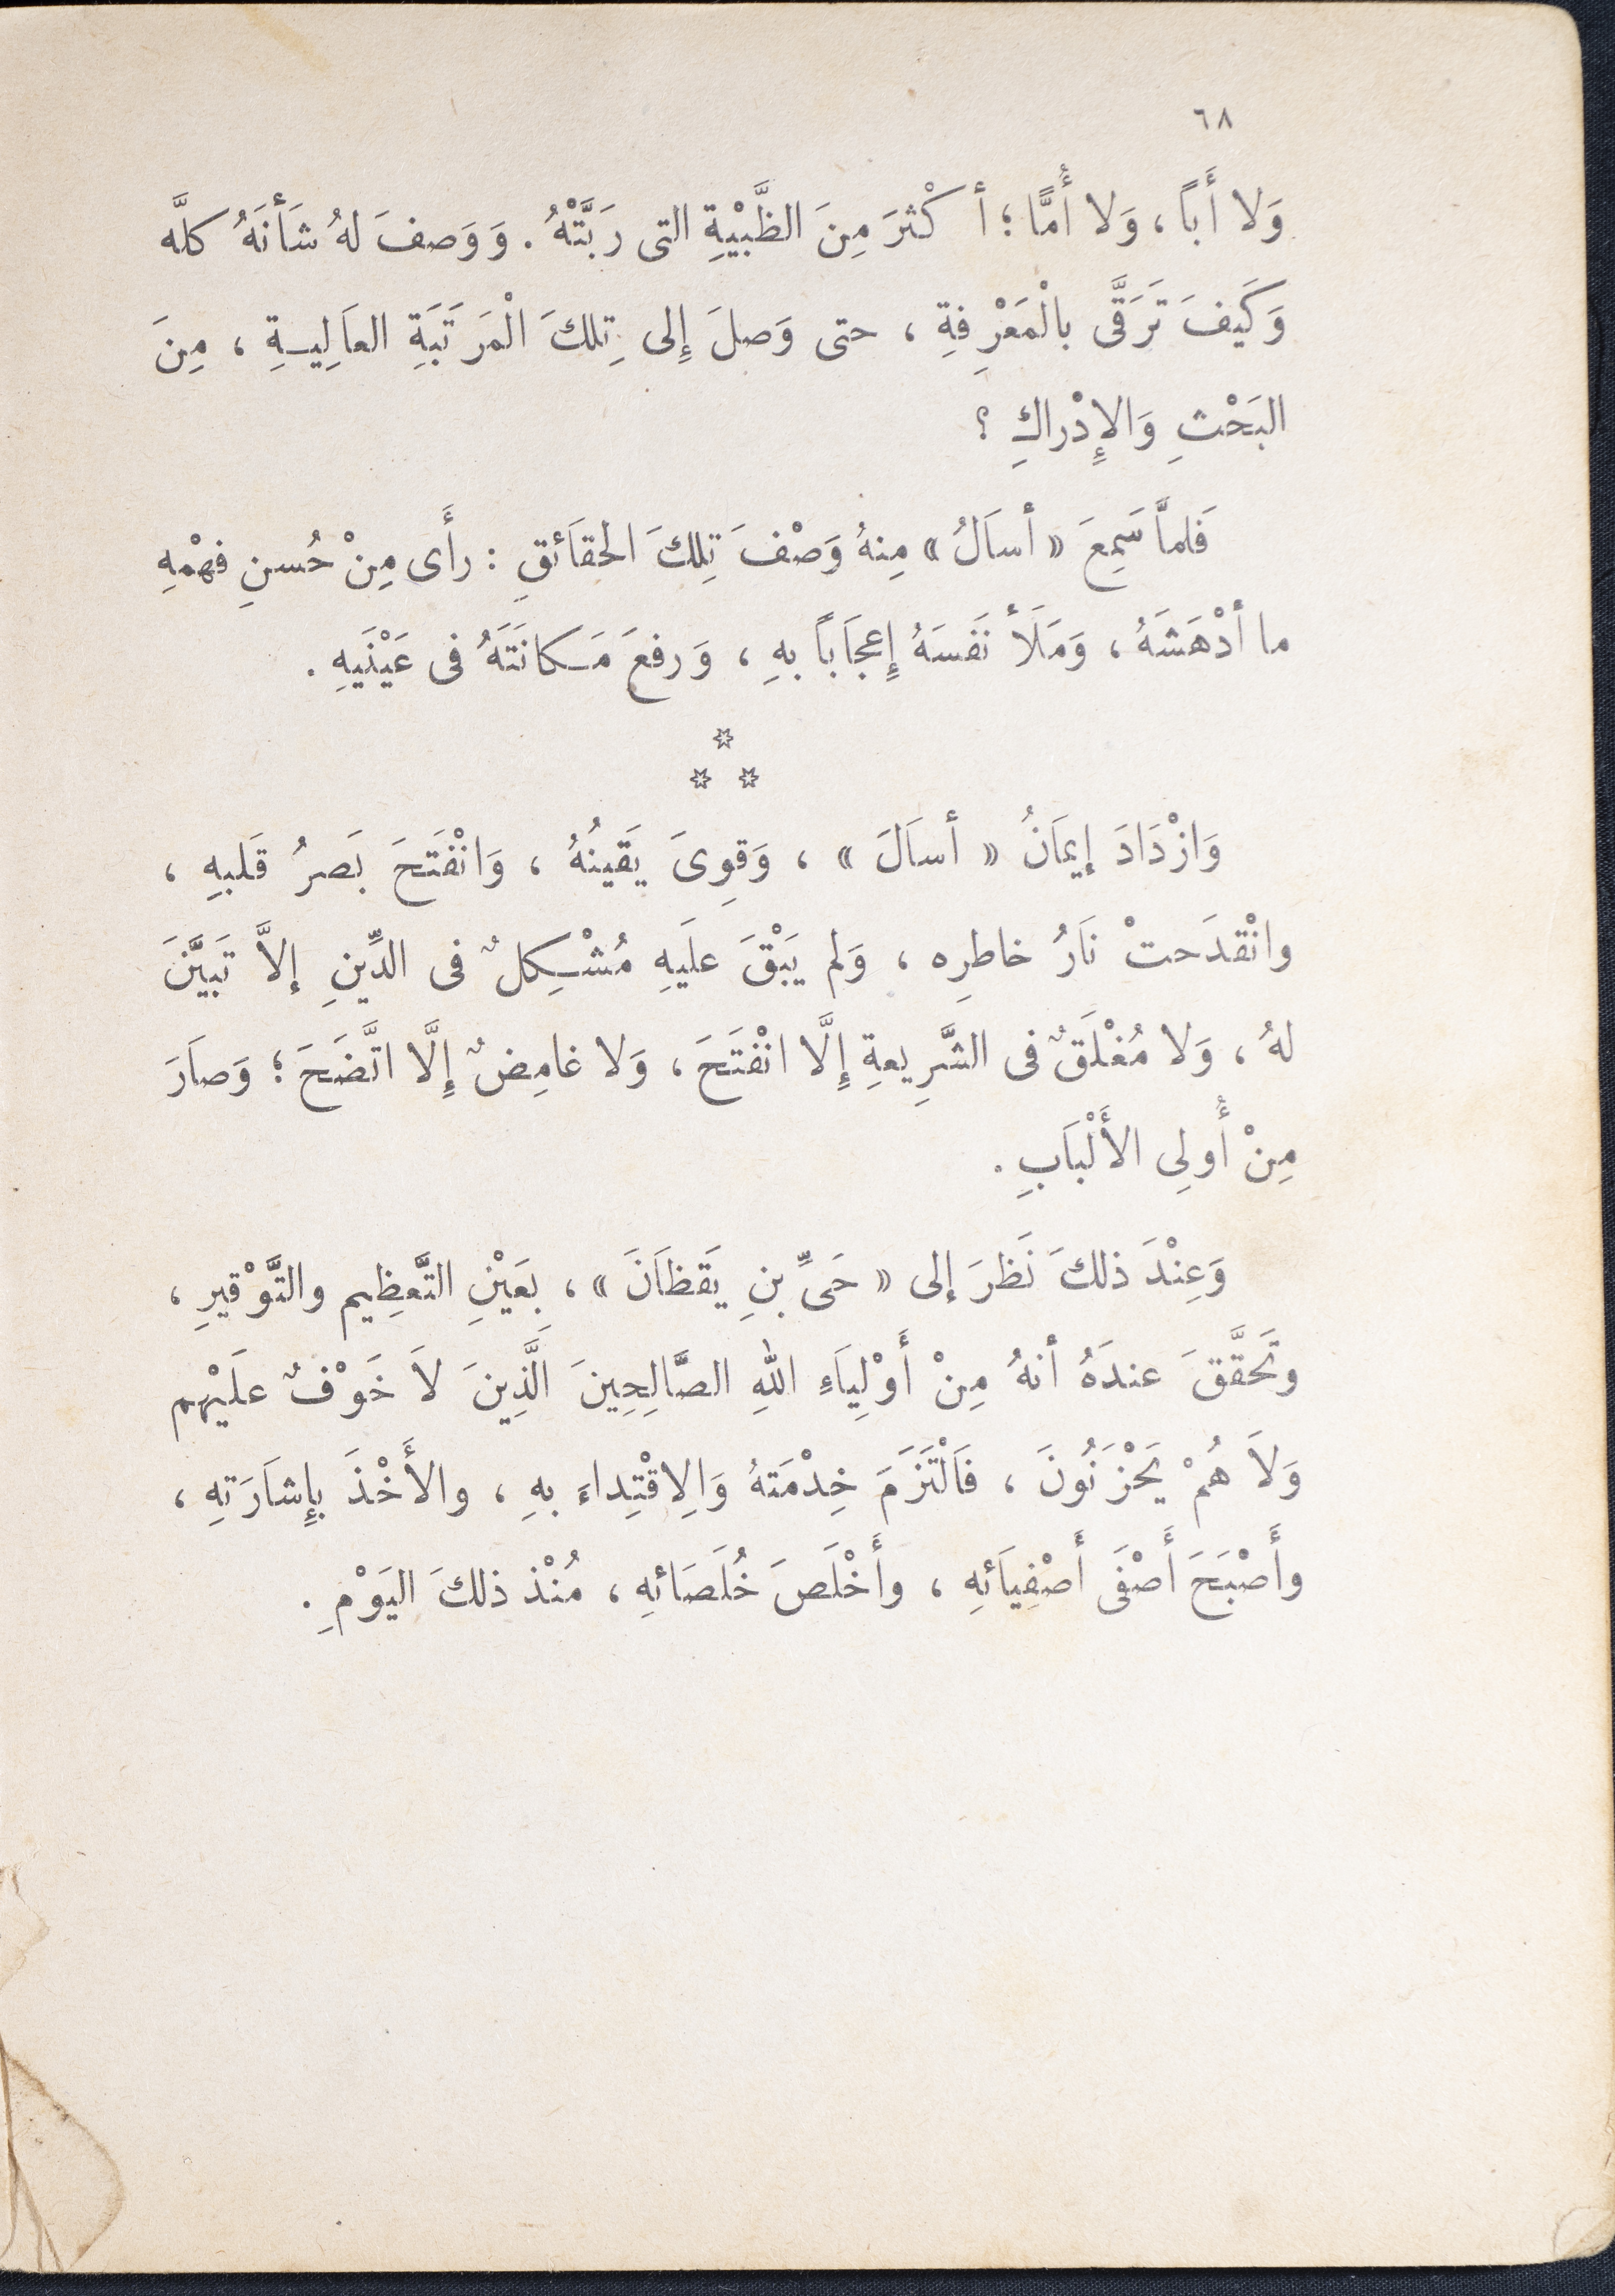 ٦٨
وَلا أَباً، وَلا أُمًّا؛ أكْثرَ مِنَ الظَّبْيَةِ التى رَبَّتْهُ. وَوَصفَ لهُ شَأنَهُ كلَّه
وَكَيفَ تَرَقَّى بالْمَعَرْفةِ، حتى وَصلَ إِلى تِلكَ الْمَرَتَبَةِ العاَلِيةِ، مِنَ
البَحْثِ وَالإِدْراكِ؟
فَلماَّ سَمِعَ «أسالُ» مِنهُ وَصْفَ تِلكَ الحقاَئقِ: رأَى مِنْ حُسنِ فهْمهِ
ما أدْهَشَهُ، وَمَلَأ نَفسَهُ إِعجَاباً بهِ، وَرفعَ مَكانَتَهُ فى عَيْنَيهِ.
*
* *
وَازْدَادَ إيمَانُ «أسالَ»، وَقوِىَ يَقينُهُ، وَانْفتَحَ بَصرُ قَلبهِ،
وانْقدَحتْ نَارُ خاطرِه، وَلم يَبْقَ علَيهِ مُشْكِلٌ فى الدِّينِ إلاَّ تَبيَّنَ
لهُ، وَلا مُغْلَقٌ فى الشَّرِيعةِ إِلَّا انْفتَحَ، وَلا غامِضٌ إِلَّا اتَّضَحَ؛ وَصاَرَ
مِنْ أُولِى الألْباَبِ.
وَعِنْدَ ذلكَ نَظرَ إلى «حَىِّ بنِ يَقظاَنَ»، بِعَيْنِ التَّعظِيم والتَّوْقيرِ،
وتَحَقَّقَ عندَهُ أنهُ مِنْ أَوْلِياَءِ اللهِ الصَّالِحِينَ الَّذِينَ لاَ خَوْفٌ علَيْهم
وَلاَ هُمْ يَحْزَنُونَ، فَالْتَزَمَ خِدْمَتهُ وَالِاقْتِداءَ بهِ، والأَخْذَ بإِشاَرَتهِ،
وأَصْبَحَ أَصْفَى أَصْفِياَئهِ، وأَخْلَصَ خُلَصَائهِ، مُنْذ ذلكَ اليَوْمِ.